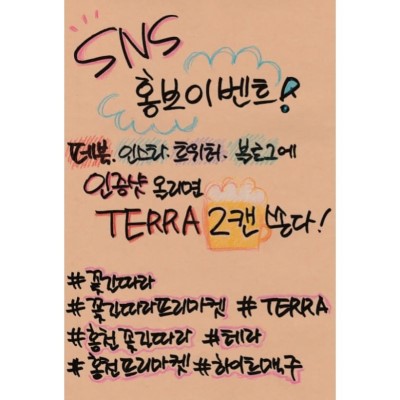 SNS
홍보이벤트!
페북. 인스타. 트위터. 블로그에
인증샷 올리면
TERRA 2캔 쏜다!
#꽃길따라
#꽃길따라프리마켓 #TERRA
#홍천꽃길따라 #테라
#홍천프리마켓 #하이트맥주